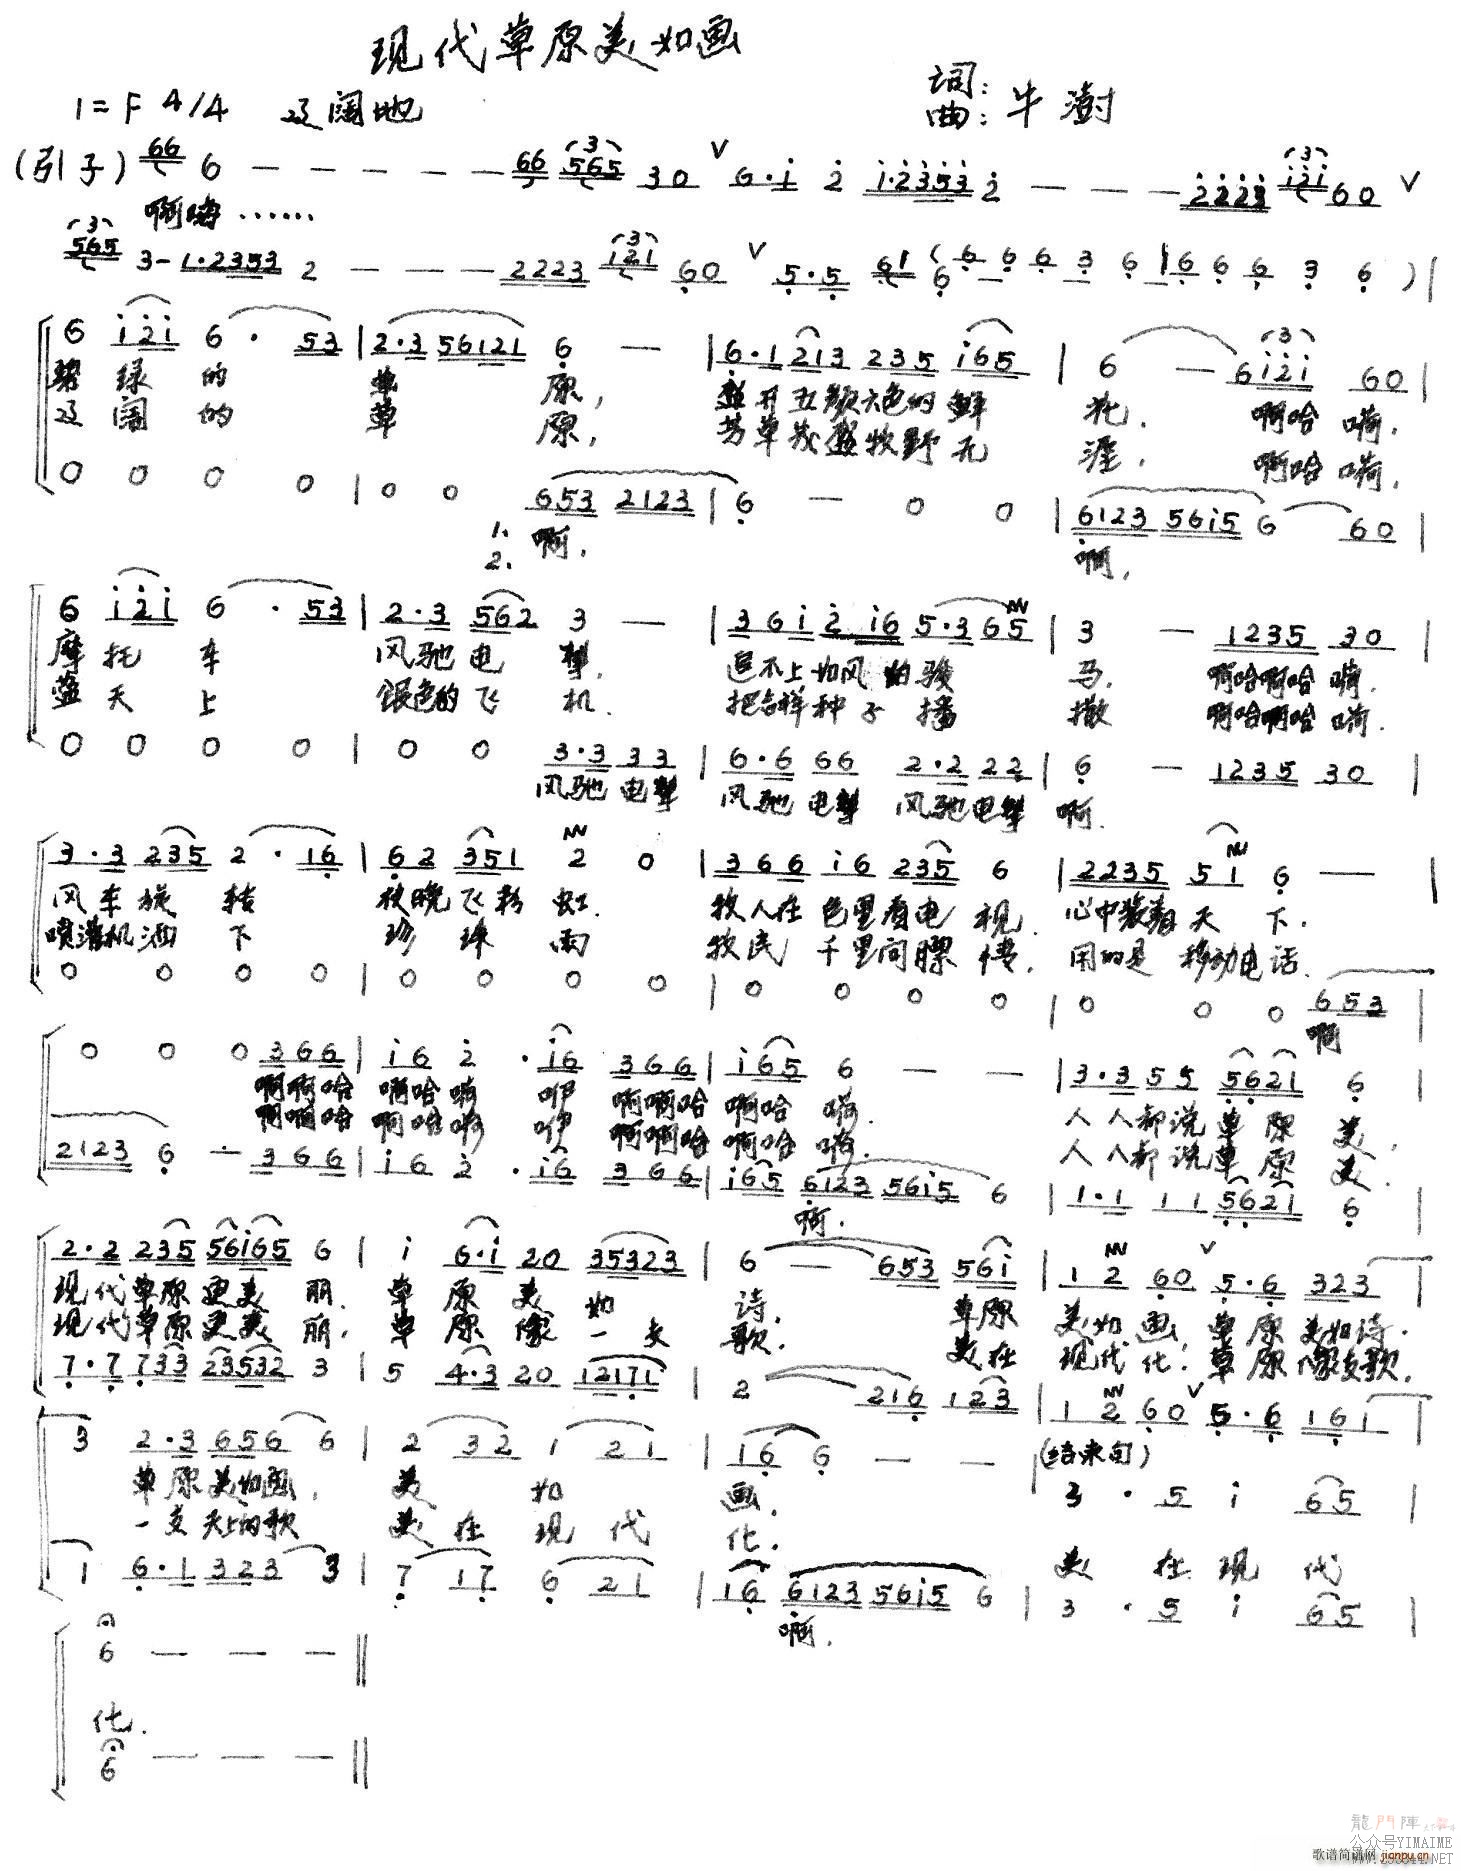 现代草原美如画
1=F 4/4 辽阔地
词:
曲: 牛澍
(引子) 66 6 — — — — — 66 565 30 V 6·i 2 i·2353 2 — — — 2223 i2i 60 V
啊嗬……
565 3-1·2353 2 — — — 2223 i21 60 V 5·5 61 (6 6 6 6 3 6 | 6 6 6 3 6 ) |
6 i2i 6· 53 | 2·3 56121 6 — | 6·1 213 235 i65 | 6 — 6i2i 60 |
碧绿的 草 原, 盛开五颜六色的鲜 花, 啊哈嗬,
辽阔的 草 原, 芳草茂盛牧野无 涯, 啊哈嗬,
0 0 0 0 | 0 0 653 2123 | 6 — 0 0 | 6123 56i5 6 60 |
1. 啊, 啊,
2.
6 i2i 6 · 53 | 2·3 562 3 — | 36i 2 i6 5·3 65 | 3 — 1235 30 |
摩托车 风驰电掣, 追不上如风的骏 马, 啊哈啊哈嗬,
蓝天上 银色的飞机, 把吉祥种子播 撒 啊哈啊哈嗬.
0 0 0 0 | 0 0 3·3 33 | 6·6 66 2·2 22 | 6 — 1235 30 |
风驰电掣 风驰电掣 风驰电掣 啊.
3·3 235 2·16 | 62 351 2 0 | 366 i6 235 6 | 2235 51 6 — |
风车旋转 夜晚飞彩虹. 牧人在 里看电视, 心中装着天下.
喷灌机洒下 珍珠雨 牧民千里问膘情, 用的是移动电话.
0 0 0 0 | 0 0 0 0 | 0 0 0 0 | 0 0 0 653 |
啊
0 0 0 366 | i6 2 ·i6 366 | i65 6 — — | 3·3 55 5621 6 |
啊啊哈 啊哈嗬 咿 啊啊哈 啊哈 嗬. 人人都说草原美,
啊啊哈 啊哈嗬 咿 啊啊哈 啊哈 嗬. 人人都说草原美.
2123 6 — 366 | i6 2 ·i6 366 | i65 6123 56i5 6 | 1·1 11 5621 6 |
啊.
2·2 235 56i65 6 | i 6·i 20 35323 | 6 — 653 56i | 12 60 V 5·6 323 |
现代草原更美丽, 草原美如 诗, 草原 美如画, 草原美如诗.
现代草原更美丽, 草原像一支 歌. 美在 现代化: 草原像支歌.
7·7 733 23532 3 | 5 4·3 20 12171 | 2 216 123 | 12 60 V 5·6 161 |
3 2·3 656 6 | 2 32 1 21 | 16 6 — — | (结束句) 3 · 5 i 65 |
草原美如画, 美 如 画, 美在现代
一支天上的歌 美在现代 化.
1 6·1 323 3 | 7 17 6 21 | 16 6123 56i5 6 | 3 · 5 i 65 |
啊,
6 — — — ‖
化.
6 — — — ‖
龍門陣
公众号YIMAIME
歌谱简谱网 jianpu.cn